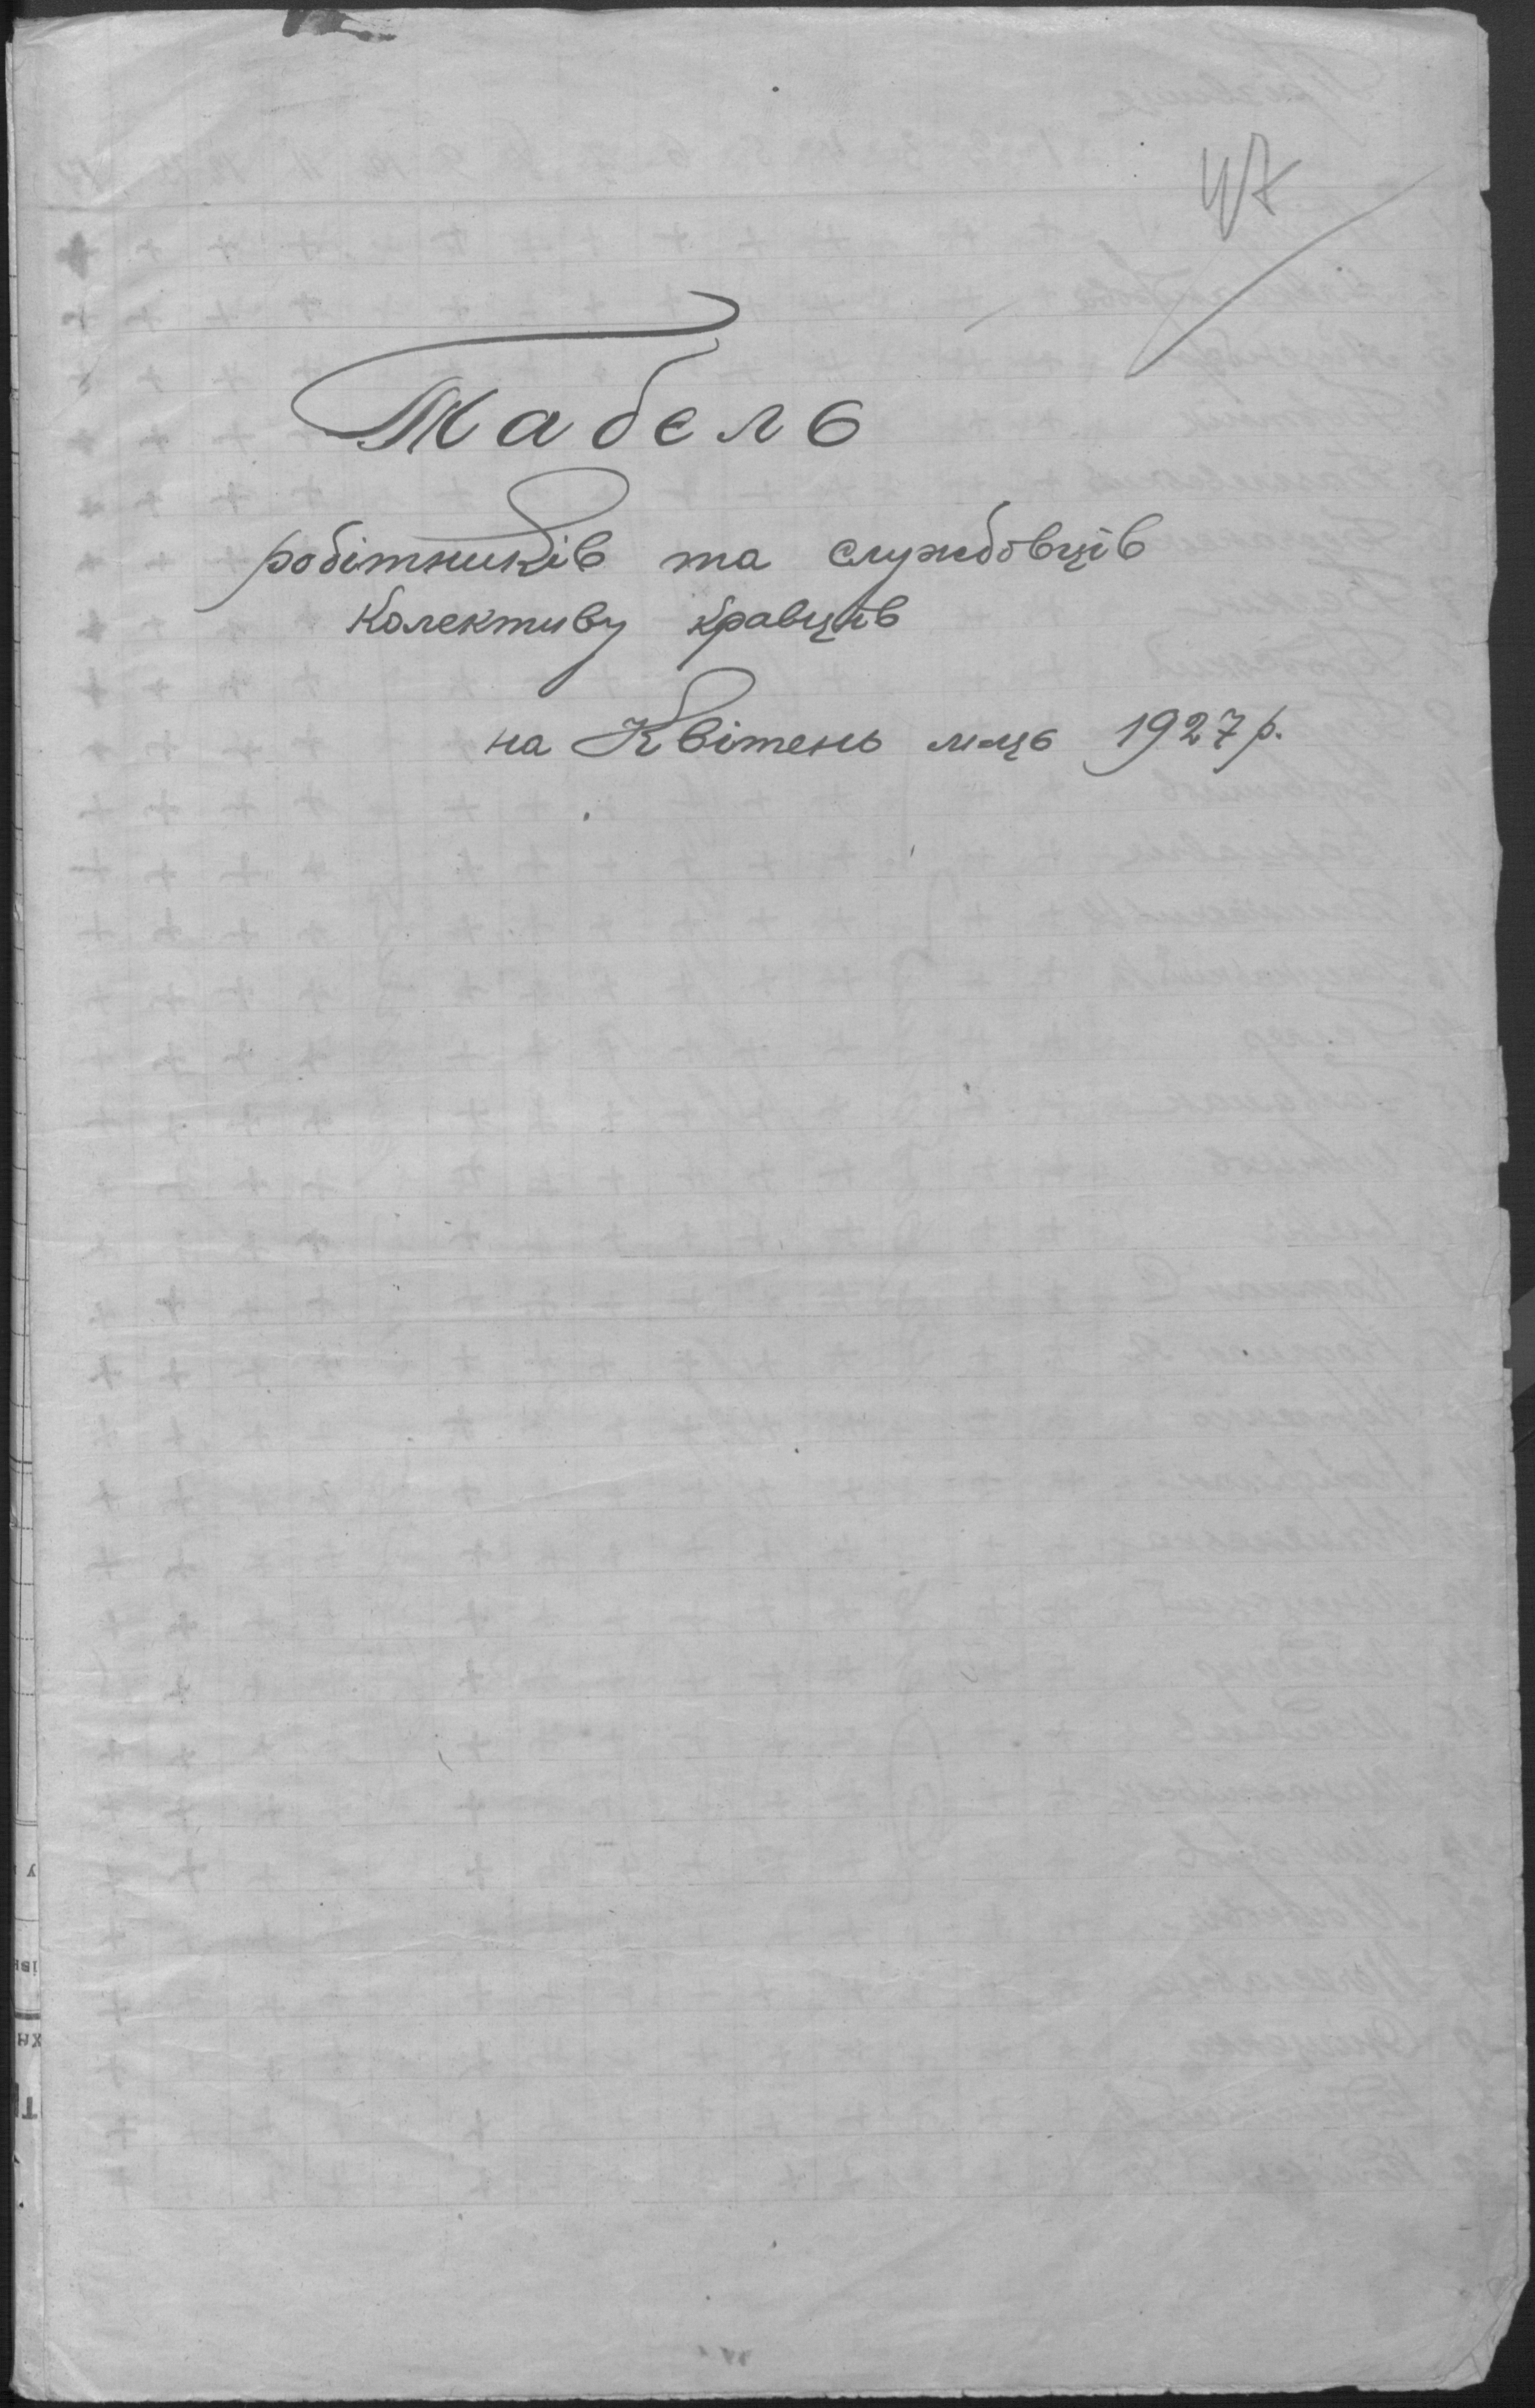 47
Табель
робітників та службовців
колективу кравців
на Квітень м-ць 1927 р.